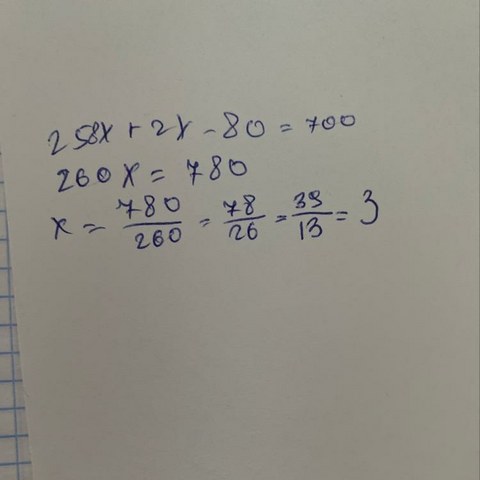 258x + 2x - 80 = 700
260x = 780
x = 780/260 = 78/26 = 39/13 = 3